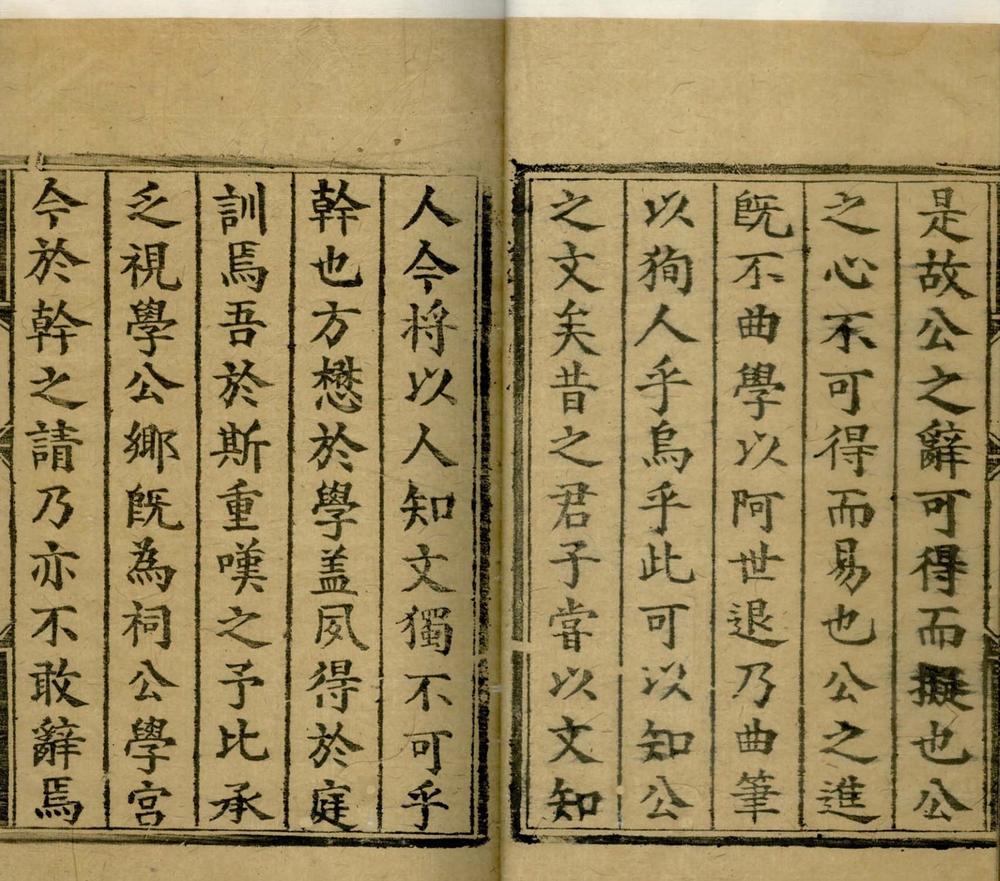 是故公之辭可得而擬也公
之心不可得而易也公之進
旣不曲學以阿世退乃曲筆
以狥人乎烏乎此可以知公
之文矣昔之君子嘗以文知
人今將以人知文獨不可乎
幹也方懋於學盖夙得於庭
訓焉吾於斯重嘆之予比承
乏視學公鄉旣為祠公學宮
今於幹之請乃亦不敢辭焉